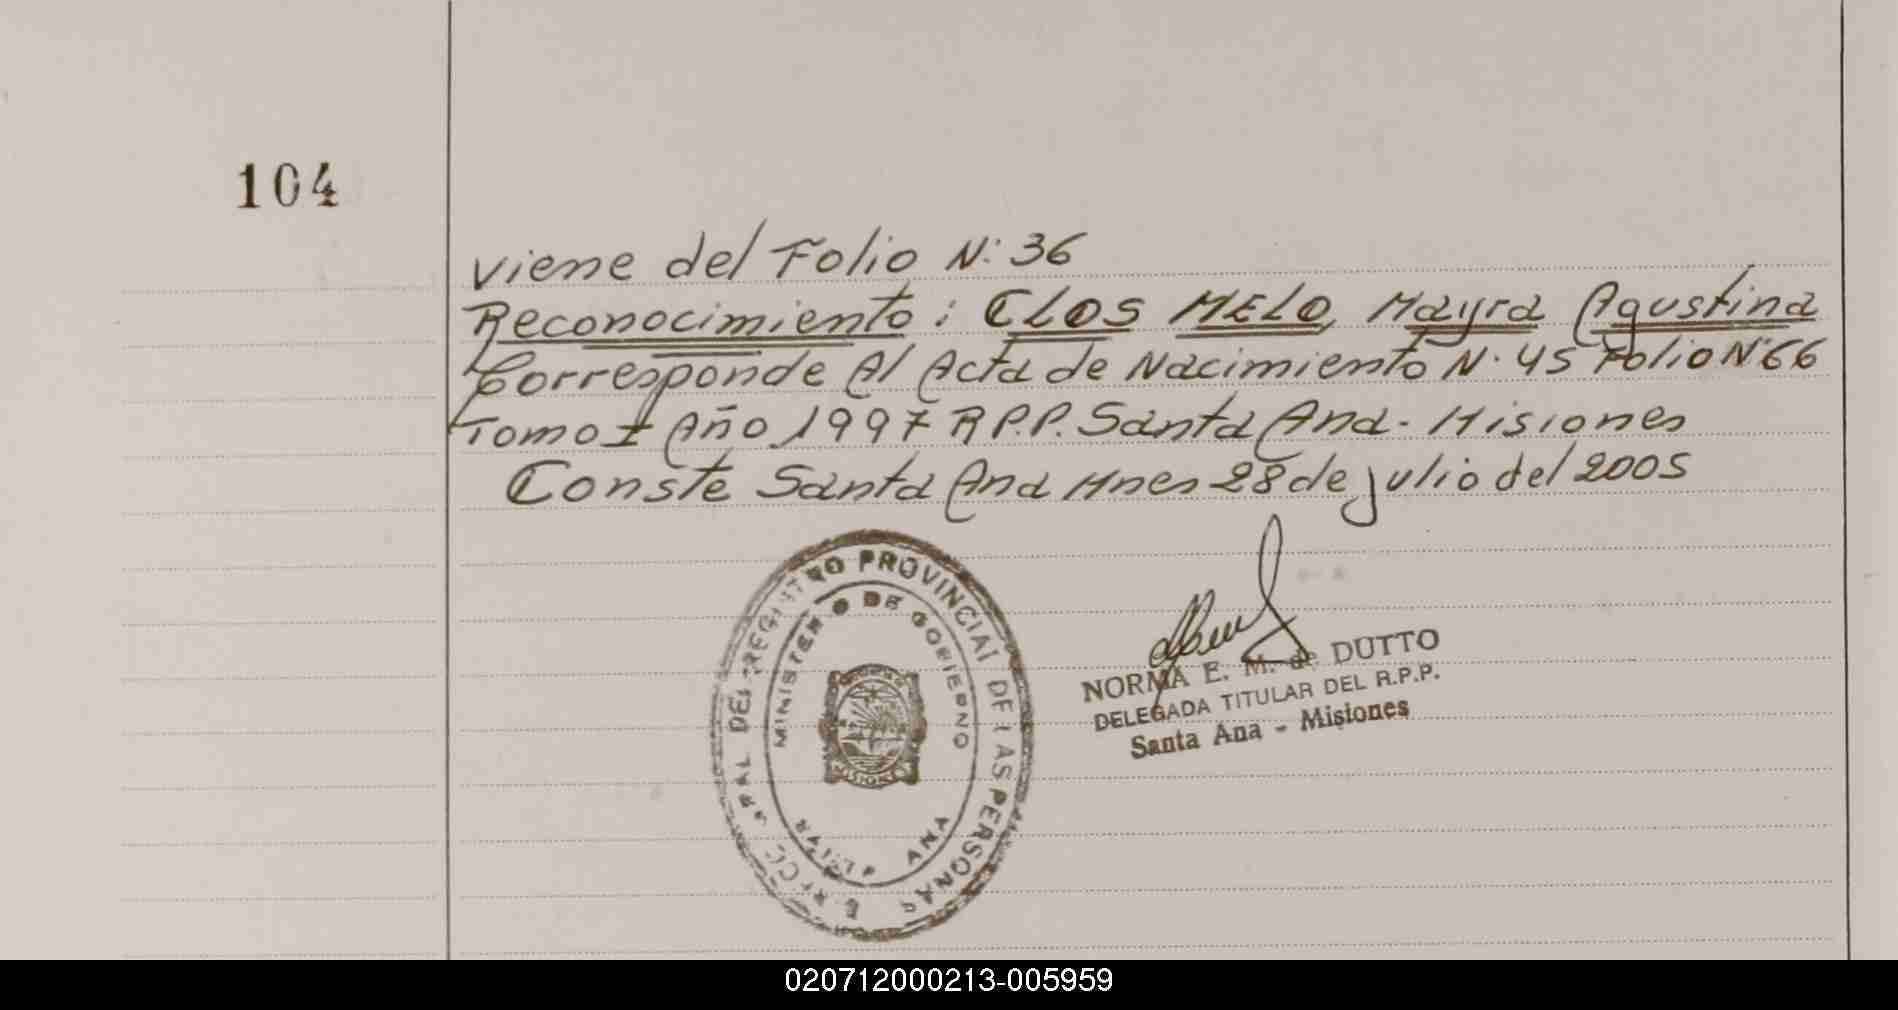 104
Viene del Folio N: 36
Reconocimiento: CLOS MELO, Mayra Agustina
Corresponde Al Acta de Nacimiento N. 45 Folio N° 66
Tomo I Año 1997 R P.P. Santa Ana - Misiones
Conste Santa Ana Mnes 28 de julio del 2005
REGISTRO PROVINCIAL DE LAS PERSONAS
MINISTERIO DE GOBIERNO
MISIONES
ANA
NORMA E. M. de DUTTO
DELEGADA TITULAR DEL R.P.P.
Santa Ana - Misiones
020712000213-005959